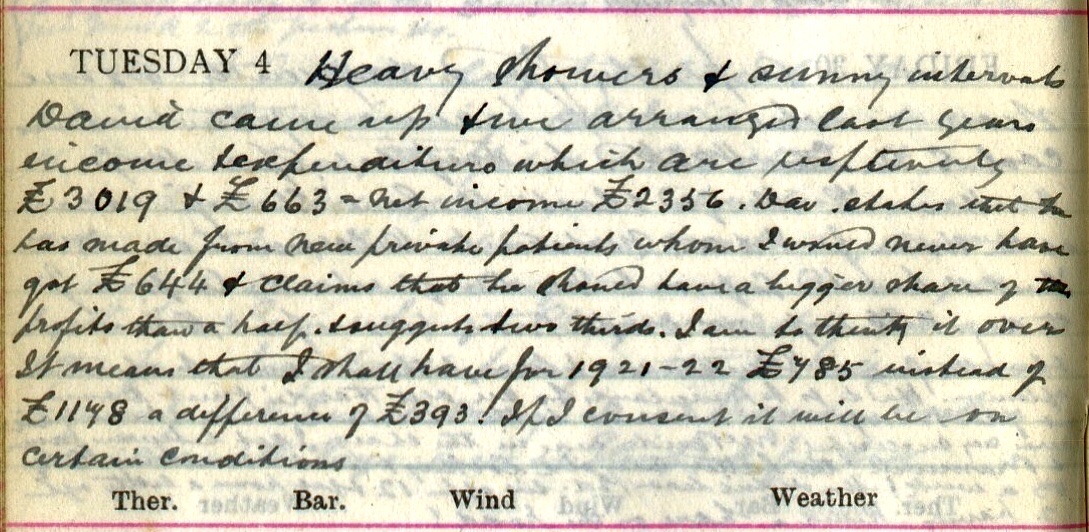 TUESDAY 4 Heavy showers & sunny intervals
David came up & we arranged last years
income & expenditure which are respectively
£3019 & £663 = Net income £2356. Dav. states that he
has made from new private patients whom I would never have
got £644 & claims that he should have a bigger share of the
profits than a half. & suggests two thirds. I am to think it over
It means that I shall have for 1921-22 £785 instead of
£1178 a difference of £393! If I consent it will be on
certain conditions
Ther. Bar. Wind Weather